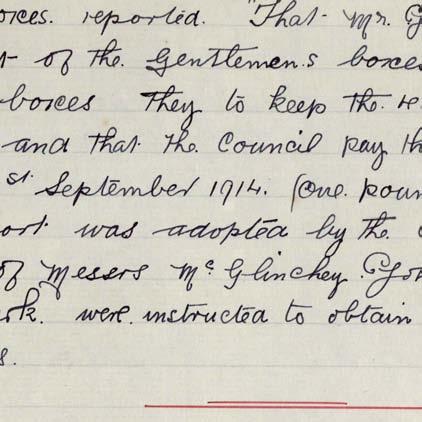 oxes. reported. "That Mr. G
t of the Gentlemen.s boxes
boxes they to keep the. re
and that the Council pay th
st September 1914. (One. poun
ort was adopted by the.
of Messrs Mc. Glinchey.
rk. were. instructed to obtain
s.